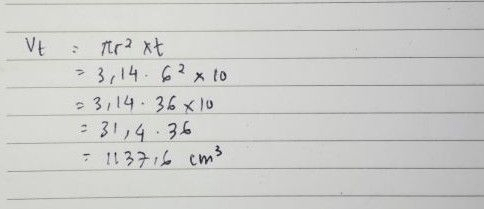 Vt = πr² × t
= 3,14 · 6² × 10
= 3,14 · 36 × 10
= 31,4 · 36
= 1137,6 cm³